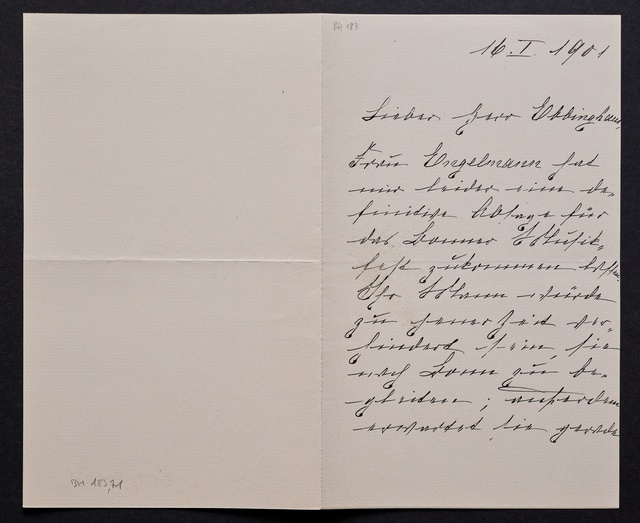 BH 183
16. I. 1901
Lieber Herr Ebbinghaus,
Frau Engelmann hat
mir leider eine de-
finitive Absage für
das Bonner Musik-
fest zukommen lassen.
Ihr Mann würde
zu jener Zeit ver-
hindert sein, sie
nach Bonn zu be-
gleiten; außerdem
erwartet sie gerade
BH 183,71